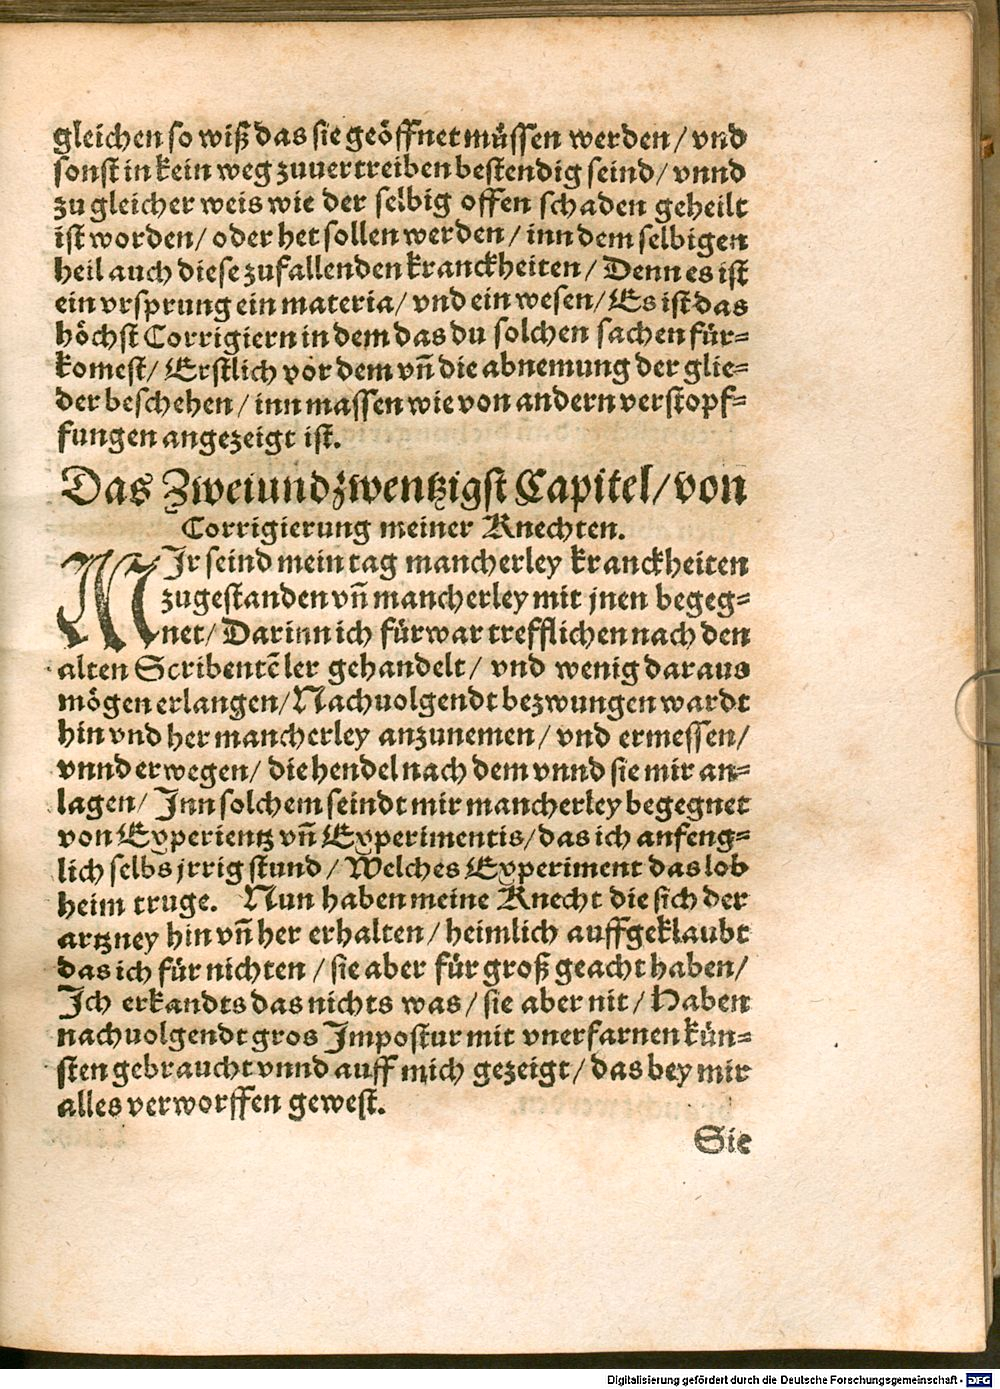 gleichen so wiß das sie geöffnet müssen werden / vnd
sonst in kein weg zuuertreiben bestendig seind / vnnd
zu gleicher weis wie der selbig offen schaden geheilt
ist worden / oder het sollen werden / inn dem selbigen
heil auch diese zufallenden kranckheiten / Denn es ist
ein vrsprung ein materia / vnd ein wesen / Es ist das
höchst Corrigiern in dem das du solchen sachen für-
komest / Erstlich vor dem vñ die abnemung der glie-
der beschehen / inn massen wie von andern verstopf-
fungen angezeigt ist.
Das Zweiundzwentzigst Capitel / von
Corrigierung meiner Knechten.
MJr seind mein tag mancherley kranckheiten
zugestanden vñ mancherley mit jnen begeg-
net / Darinn ich fürwar trefflichen nach den
alten Scribentẽ ler gehandelt / vnd wenig daraus
mögen erlangen / Nachuolgendt bezwungen wardt
hin vnd her mancherley anzunemen / vnd ermessen /
vnnd erwegen / die hendel nach dem vnnd sie mir an-
lagen / Jnn solchem seindt mir mancherley begegnet
von Experientz vñ Experimentis / das ich anfeng-
lich selbs jrrig stund / Welches Experiment das lob
heim truge. Nun haben meine Knecht die sich der
artzney hin vñ her erhalten / heimlich auffgeklaubt
das ich für nichten / sie aber für groß geacht haben /
Jch erkandts das nichts was / sie aber nit / Haben
nachuolgendt gros Jmpostur mit vnerfarnen kün-
sten gebraucht vnnd auff mich gezeigt / das bey mir
alles verworffen gewest.
Sie
Digitalisierung gefördert durch die Deutsche Forschungsgemeinschaft - DFG